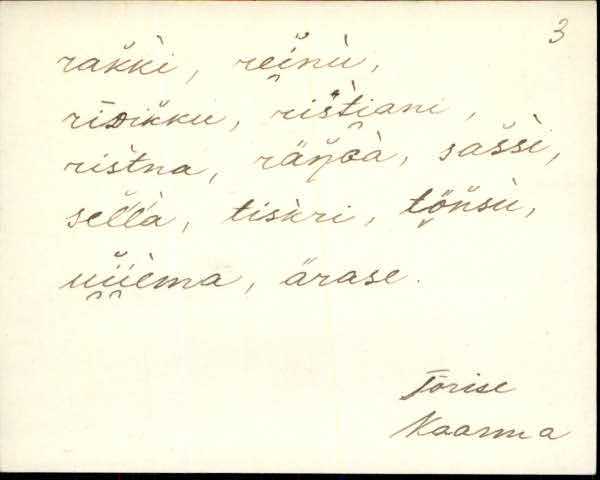 3
rak̆k̀i, rei̯n̆ù,
rīᴅik̆ku, ris̆t̀i̯ani,
ris̆tna, räŋ̆ɢà, sas̆s̀i,
sel̆l̀a, tisk̀ri, tö̬n̆sù,
uu̯i̯èma, ärase.
Törise
Kaarma